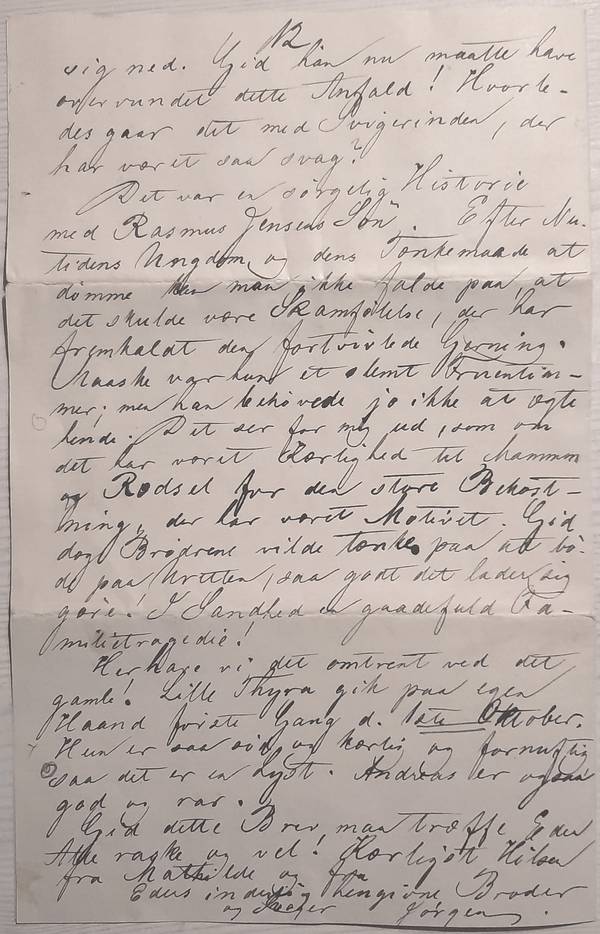 12
sig ned. Gid han nu maatte have
overvundet dette Anfald! Hvorle-
des gaar det med Svigerinden, der
har været saa svag?
Det var en sørgelig Historie
med Rasmus Jensens Søn. Efter Nu-
tidens Ungdom og dens Tænkemaade at
dømme kan man ikke falde paa, at
det skulde være Skamfølelse, der har
fremkaldt den fortvivlede Gerning.
Maaske var hun et slemt Fruentim-
mer; men han behøvede jo ikke at ægte
hende. Det ser for mig ud, som om
det har været Kærlighed til Mammon
og Rædsel for den store Bekost-
ning, der har været Motivet. Gid
dog Brødrene vilde tænke paa at bø-
de paa Uretten, saa godt det lader sig
gøre! I Sandhed en gaadefuld Fa-
milietragedie!
Her have vi det omtrent ved det
gamle. Lille Thyra gik paa egen
Haand første Gang d. 1ste Oktober.
Hun er saa sød og kærlig og fornuftig
saa det er en Lyst. Andreas er ogsaa
god og rar.
Gid dette Brev maa træffe Eder
Alle raske og vel! Kærligst Hilsen
fra Mathilde og fra
Eders inderlig hengivne Broder
og Svager Jørgen.